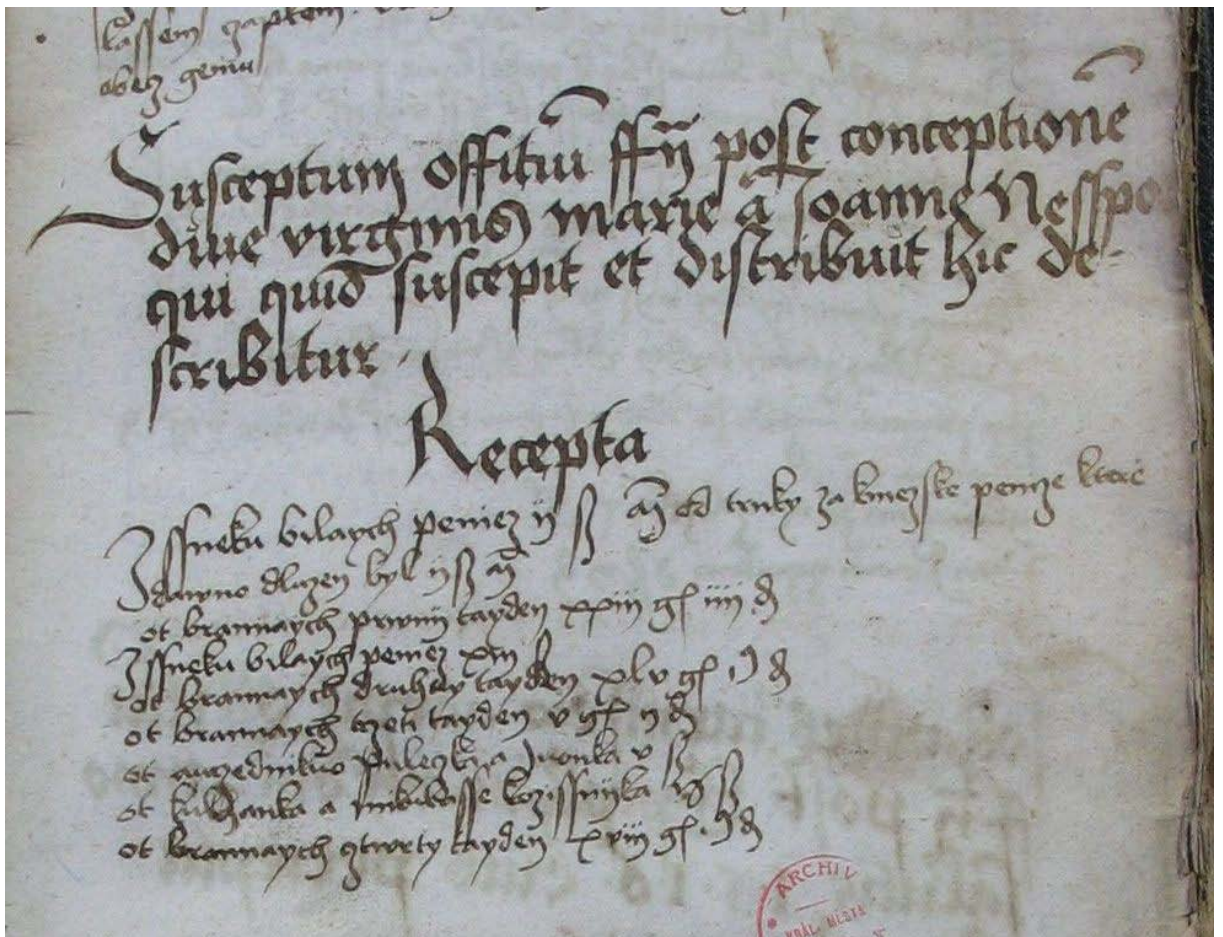 obecz gemu
Susceptum offitiū post conceptionē
diue virginis marie a Joanne Nesspo
qui quid suscepit et distribuit hic de-
scribitur.
Recepta
Z ssneku bilaych peniez ii ß od truky za kniezske penize ktere
dawno dluzen byl ii ß
ot brannaych prwnij tayden xxiii gſ iiii đ
Z ssneku bilaych peniez
ot brannaych druhay tayden xlv gſ đ
ot brannaych trzeti tayden v gſ ii đ
ot auřednikuo a v ß
ot a ß
ot brannaych cztwrty tayden xviii gſ đ
ARCHIV
KRÁL. MĚSTA